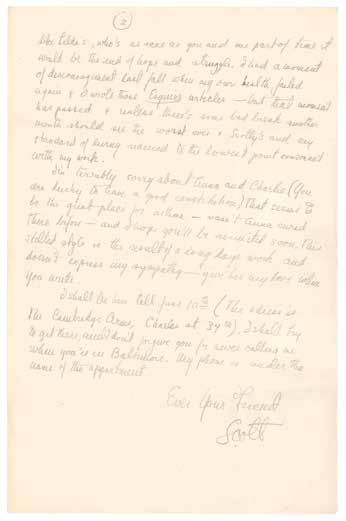 (2)
like Zelda's, who's as sane as you and me part of time it
would be the end of hope and struggle. I had a moment
of discouragement last fall when my own health failed
again & I wrote those Esquire articles — but that moment
has passed & unless there's some bad break another
month should see the worst over & Scotty's and my
standard of living reduced to the lowest point
with my work.
I'm terribly sorry about Anna and Charles (You
are lucky to have a good constitution) That seems to
be the great place for asthma — wasn't Anna cured
there before — and I hope you'll be reunited soon. This
stilted style is the result of a long day's work and
doesn't express my sympathy — give her my love when
you write.
I shall be here till June 10th (The address is
The Cambridge Arms, Charles at 34th). I shall try
to get there, and I won't forgive you for never calling me
when you're in Baltimore. My phone is under the
name of the appartment
Ever Your Friend
Scott